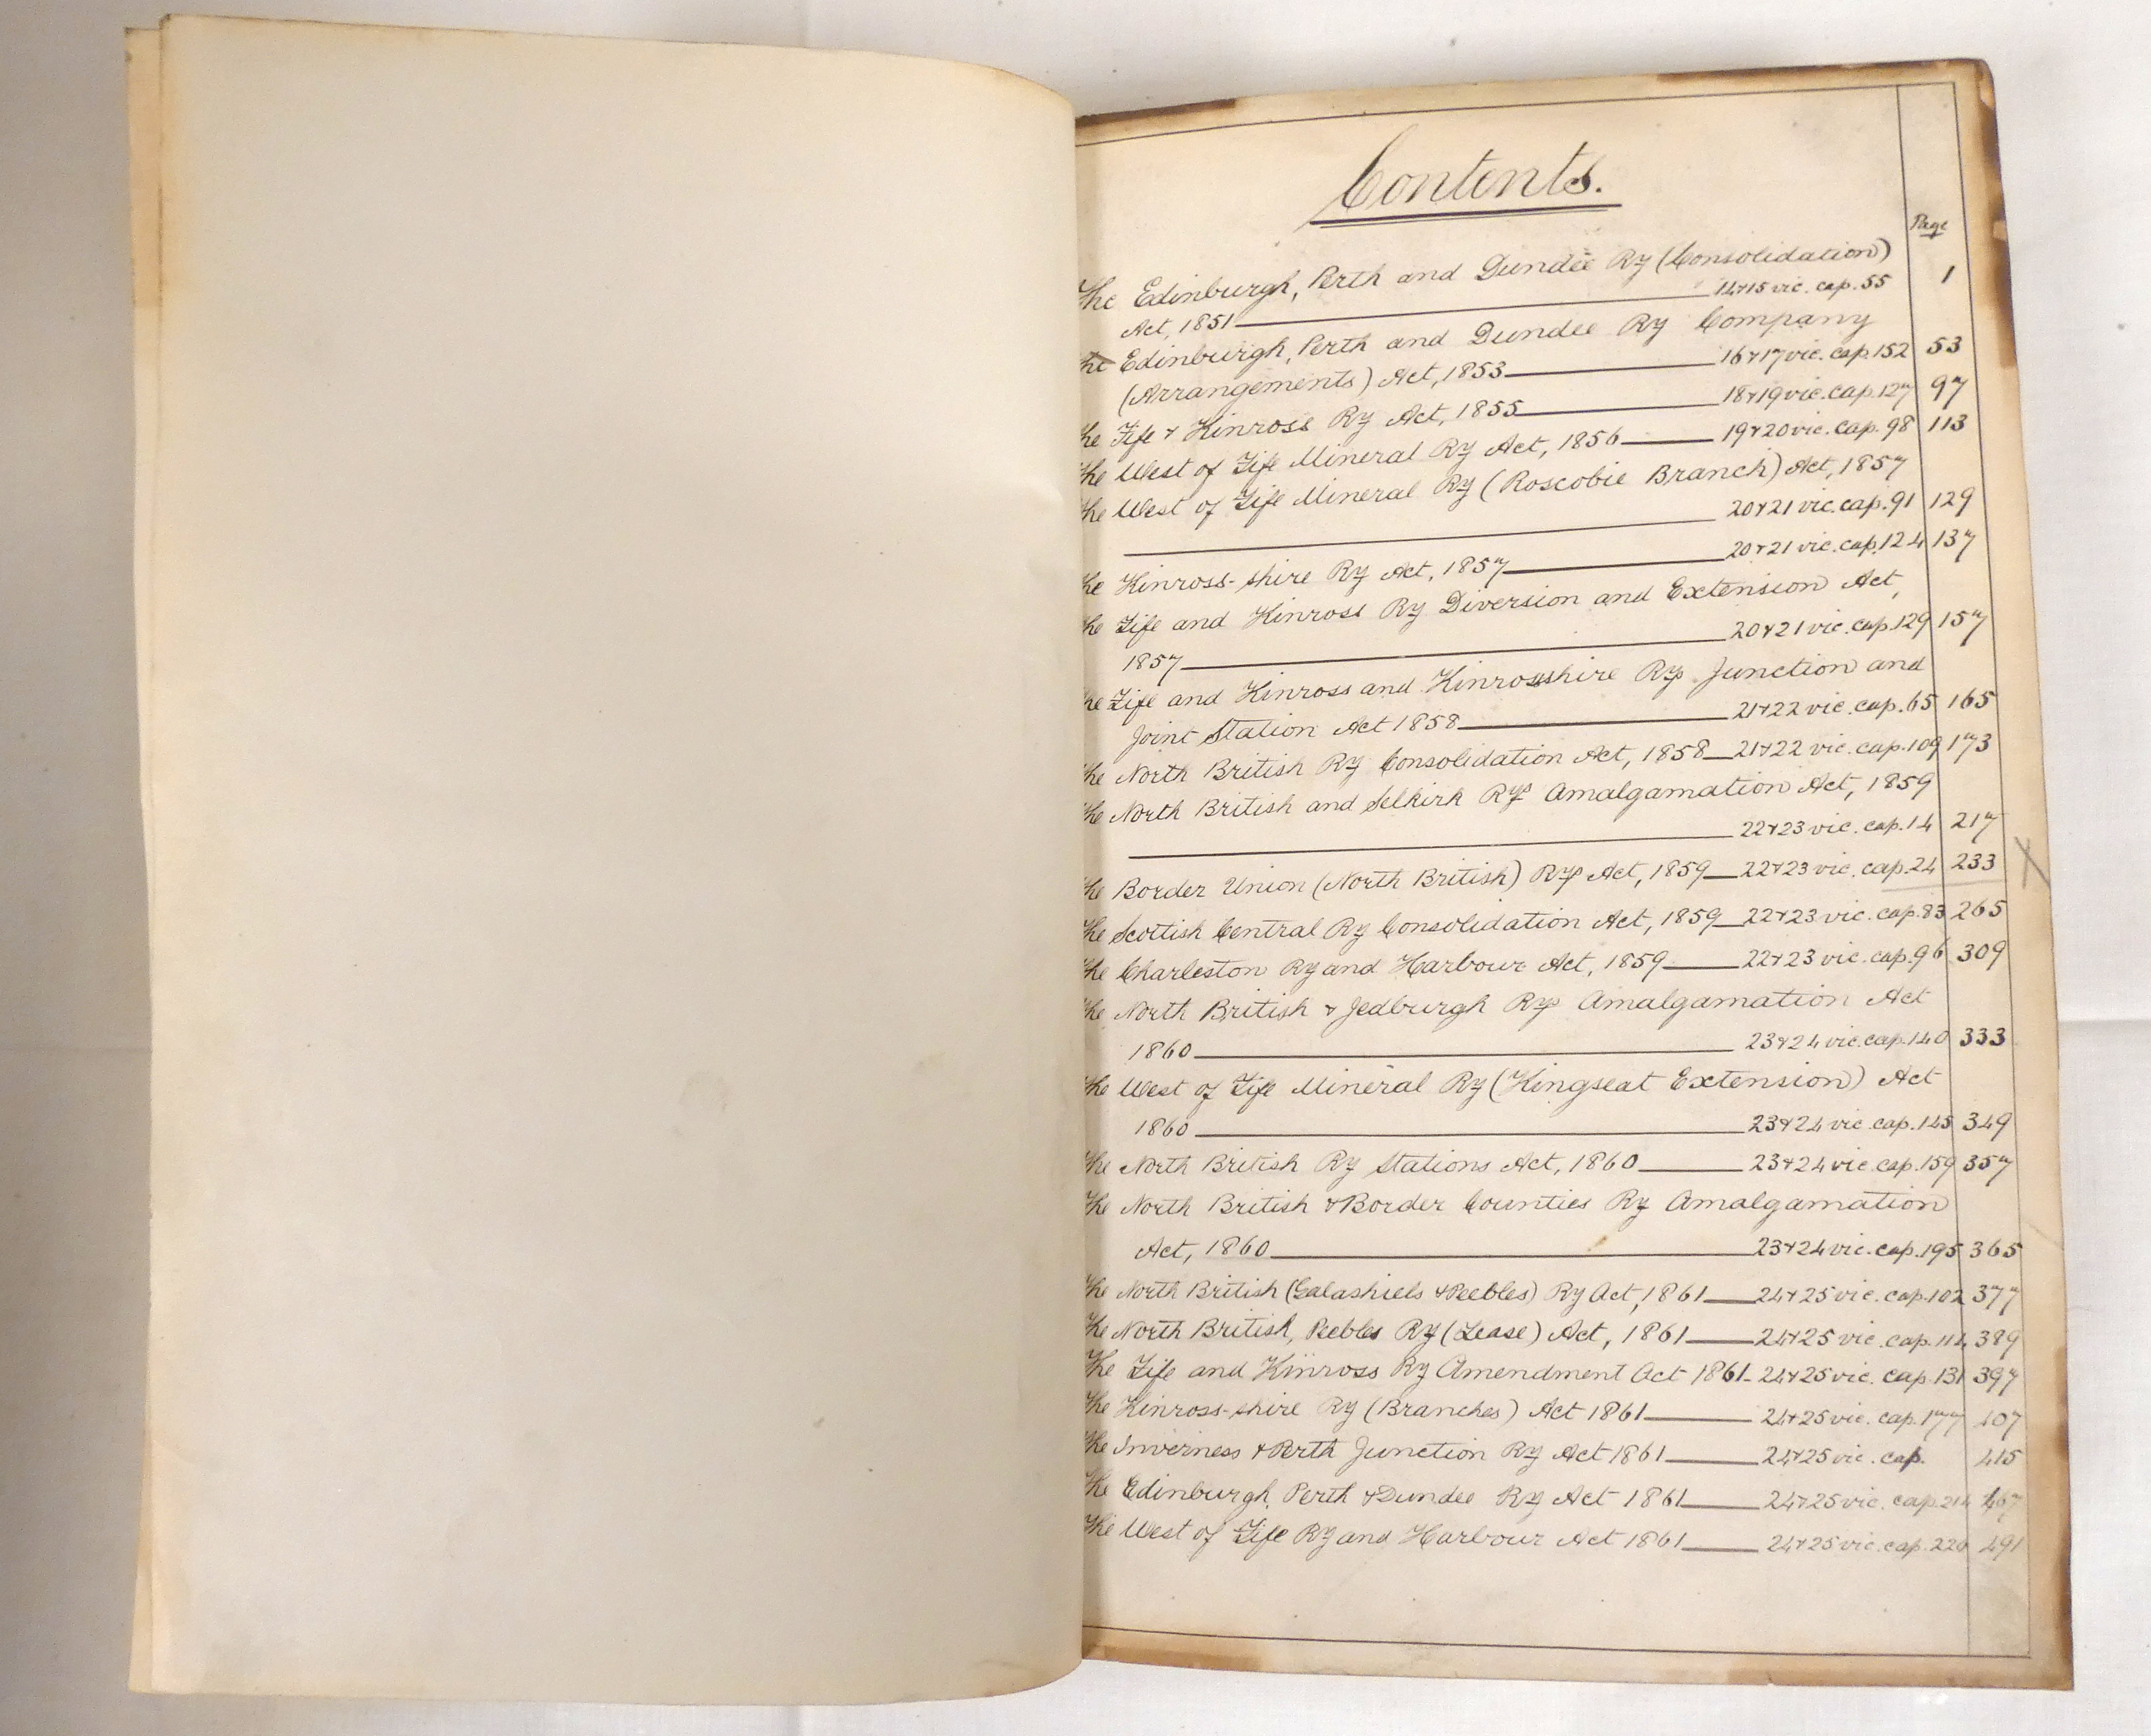 Contents.
Page
The Edinburgh, Perth and Dundee Ry (Consolidation)
Act, 1851 14&15 vic. cap. 55 1
The Edinburgh, Perth and Dundee Ry Company
(Arrangements) Act, 1853 16&17 vic. cap. 152 53
The Fife & Kinross Ry Act, 1855 18&19 vic. cap. 127 97
The West of Fife Mineral Ry Act, 1856 19&20 vic. cap. 98 113
The West of Fife Mineral Ry (Roscobie Branch) Act, 1857
20&21 vic. cap. 91 129
The Kinross-shire Ry Act, 1857 20&21 vic. cap. 124 137
The Fife and Kinross Ry Diversion and Extension Act,
1857 20&21 vic. cap. 129 157
The Fife and Kinross and Kinrossshire Rys Junction and
Joint Station Act 1858 21&22 vic. cap. 65 165
The North British Ry Consolidation Act, 1858 21&22 vic. cap. 109 173
The North British and Selkirk Rys Amalgamation Act, 1859
22&23 vic. cap. 14 217
The Border Union (North British) Rys Act, 1859 22&23 vic. cap. 24 233
The Scottish Central Ry Consolidation Act, 1859 22&23 vic. cap. 83 265
The Charleston Ry and Harbour Act, 1859 22&23 vic. cap. 96 309
The North British & Jedburgh Rys Amalgamation Act
1860 23&24 vic. cap. 140 333
The West of Fife Mineral Ry (Kingseat Extension) Act
1860 23&24 vic. cap. 145 349
The North British Ry Stations Act, 1860 23&24 vic. cap. 159 357
The North British & Border Counties Ry Amalgamation
Act, 1860 23&24 vic. cap. 195 365
The North British (Galashiels & Peebles) Ry Act, 1861 24&25 vic. cap. 102 377
The North British, Peebles Ry (Lease) Act, 1861 24&25 vic. cap. 114 389
The Fife and Kinross Ry Amendment Act 1861 24&25 vic. cap. 131 397
The Kinross-shire Ry (Branches) Act 1861 24&25 vic. cap. 177 407
The Inverness & Perth Junction Ry Act 1861 24&25 vic. cap. 415
The Edinburgh, Perth & Dundee Ry Act 1861 24&25 vic. cap. 214 467
The West of Fife Ry and Harbour Act 1861 24&25 vic. cap. 226 491